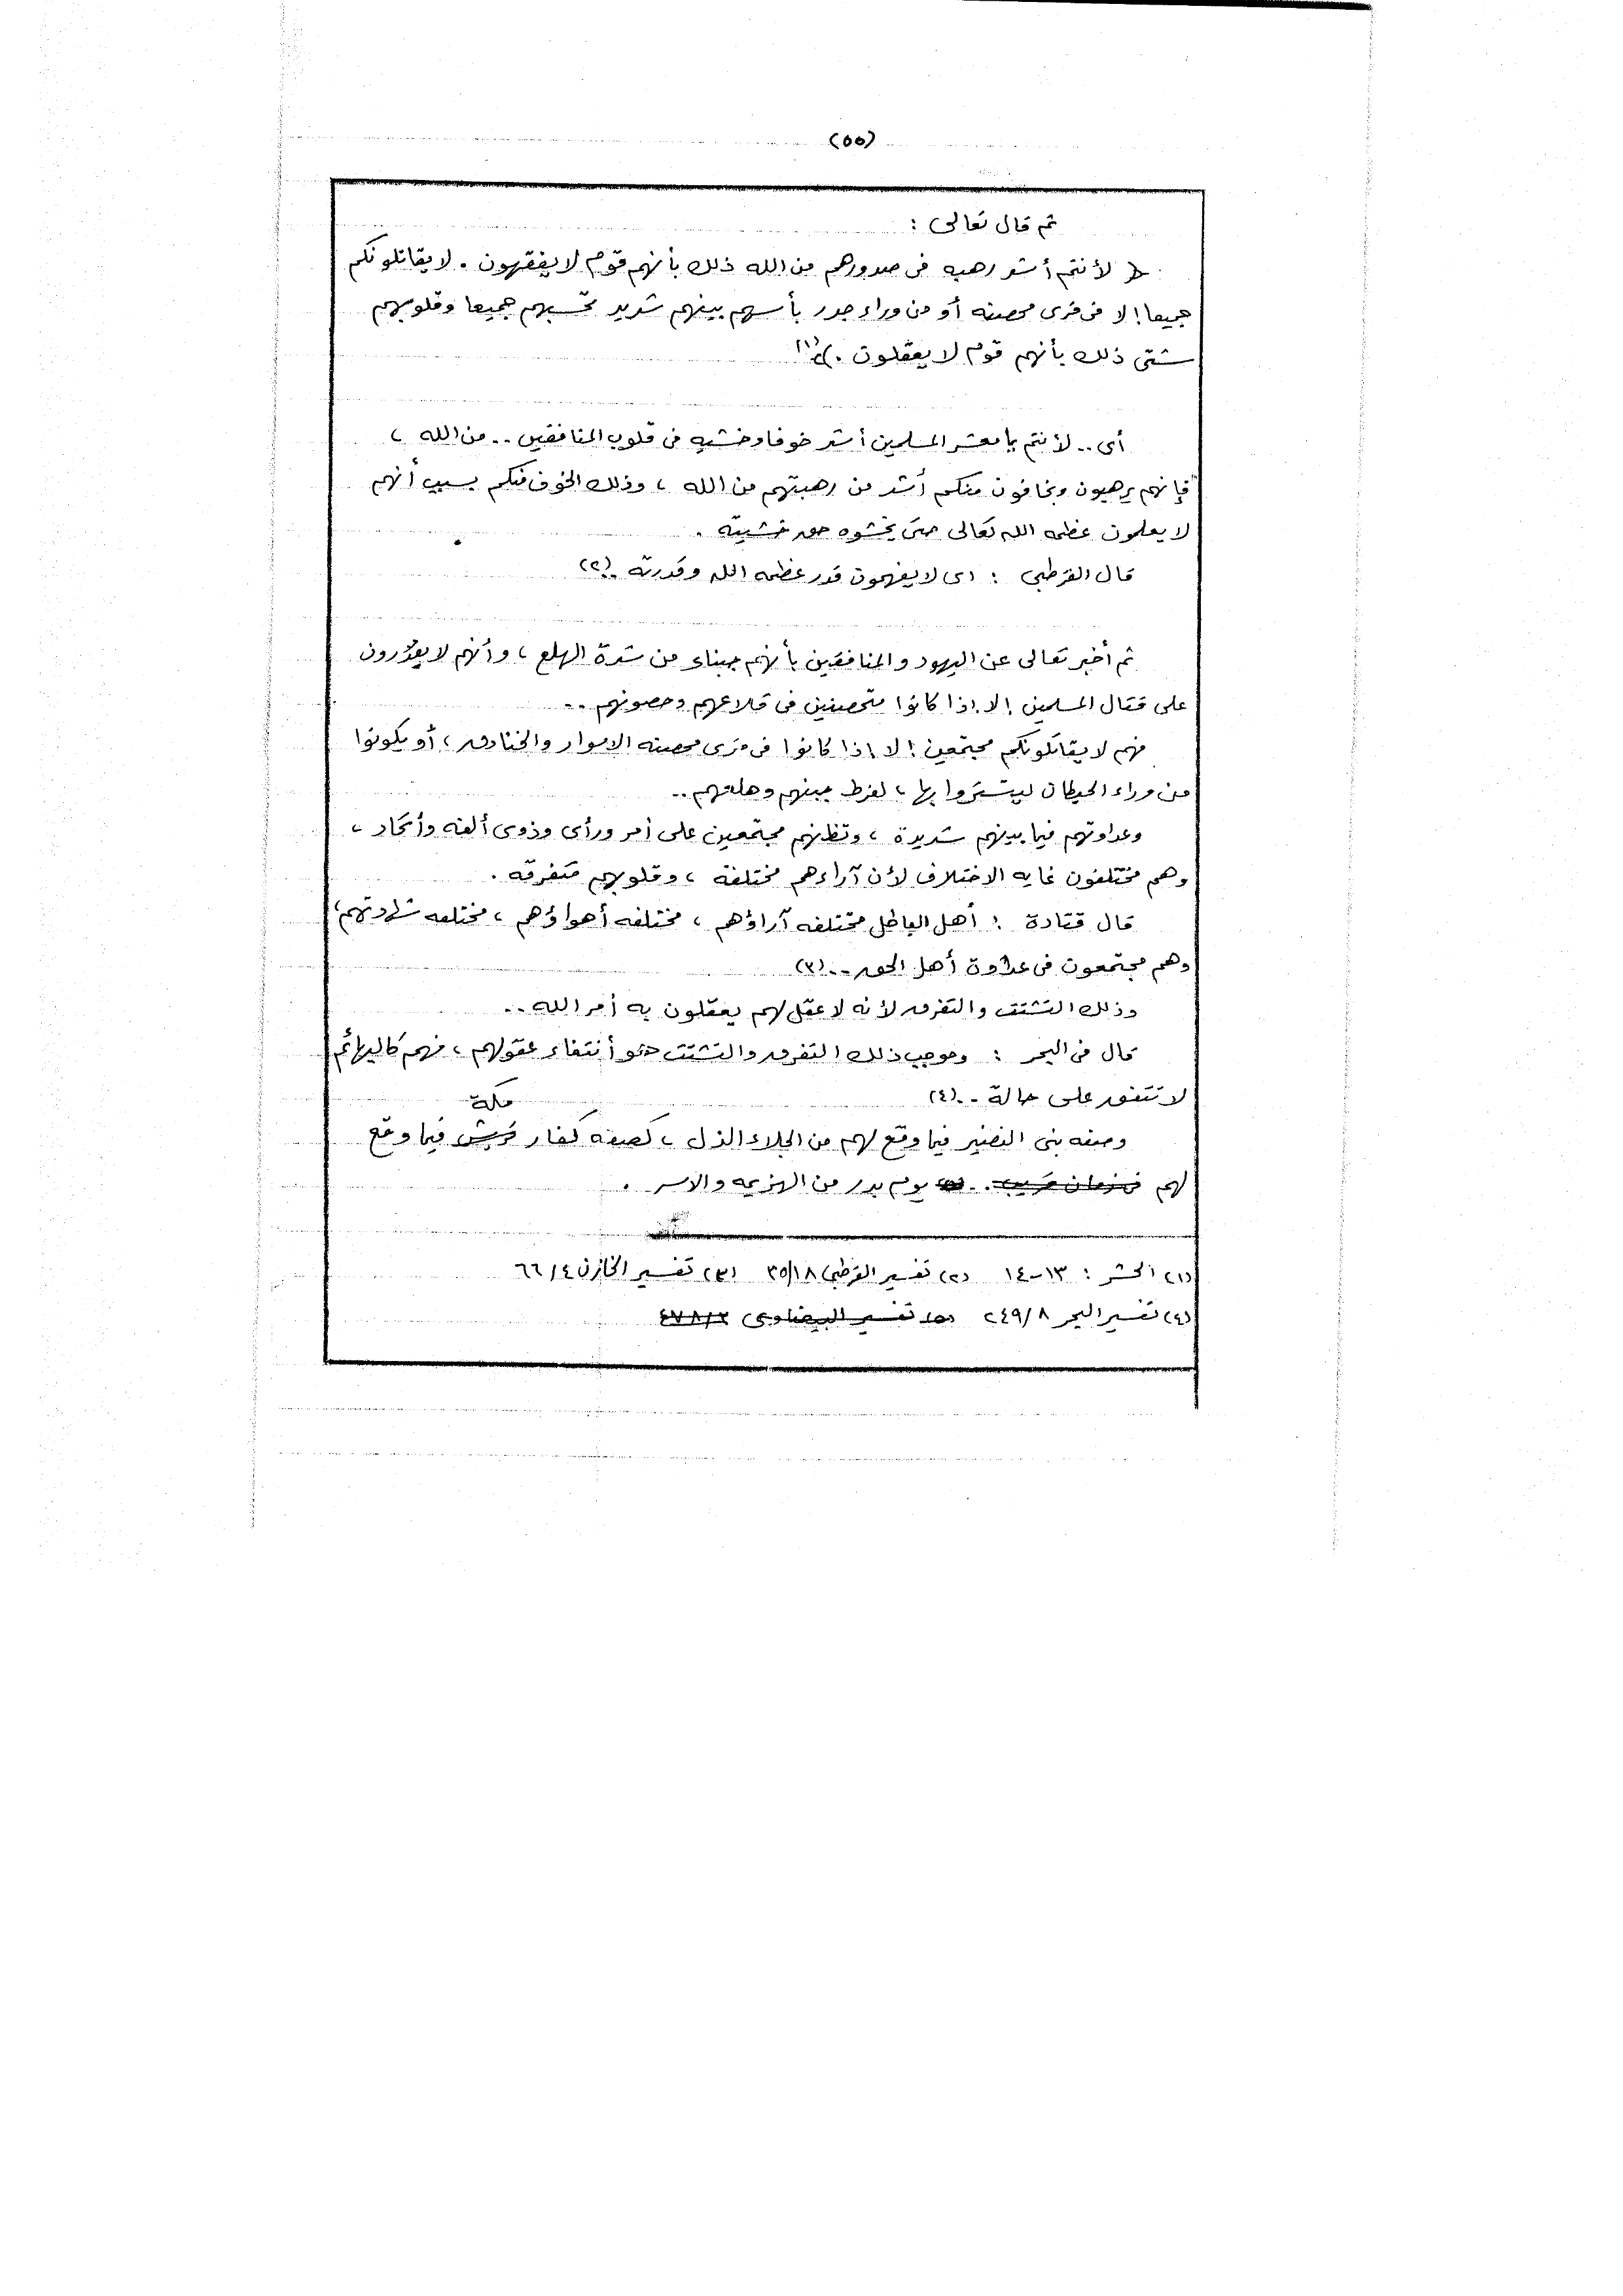 (٥٥)
ثم قال تعالى :
﴿ لأنتم أشد رهبه فى صدورهم من الله ذلك بأنهم قوم لا يفقهون . لا يقاتلونكم
جميعا إلا فى قرى محصنه أو من وراء جدر بأسهم بينهم شديد تحسبهم جميعا وقلوبهم
شتى ذلك بأنهم قوم لا يعقلون . ﴾ (١)
أى .. لأنتم يا معشر المسلمين أشد خوفا وخشيه فى قلوب المنافقين .. من الله ،
فإنهم يرهبون ويخافون منكم أشد من رهبتهم من الله ، وذلك الخوف منكم بسبب أنهم
لا يعلمون عظمه الله تعالى حتى يخشوه حق خشيته .
قال القرطبى : اى لا يفهمون قدر عظمه الله وقدرته .. (٢)
ثم أخبر تعالى عن اليهود والمنافقين بأنهم جبناء من شدة الهلع ، وأنهم لا يقدرون
على قتال المسلمين إلا إذا كانوا متحصنين فى قلاعهم وحصونهم ..
فهم لا يقاتلونكم مجتمعين إلا إذا كانوا فى قرى محصنه الاسوار والخنادق ، أو يكونوا
من وراء الحيطان ليتستروا بها ، لفرط جبنهم وهلعهم ..
وعداوتهم فيما بينهم شديدة ، وتظنهم مجتمعين على أمر ورأى وذوى ألفه وأتحاد ،
وهم مختلفون غايه الاختلاف لأن آراءهم مختلفة ، وقلوبهم متفرقه .
قال قتادة : أهل الباطل مختلفه آراؤهم ، مختلفه أهواؤهم ، مختلفه شهادتهم ،
وهم مجتمعون فى عداوة أهل الحق .. (٣)
وذلك التشتت والتفرق لأنه لا عقل لهم يعقلون به أمر الله ..
قال فى البحر : وموجب ذلك التفرق والتشتت هو أنتفاء عقولهم ، فهم كالبهائم
لا تتفق على حالة .. (٤)
مكة
وصفه بنى النضير فيما وقع لهم من الجلاء الذل ، كصفه كفار قريش فيما وقع
لهم فى زمان قريب .. يوم بدر من الهزيمه والاسر .
(١) الحشر : ١٣-١٤ (٢) تفسير القرطبى ٣٥/١٨ (٣) تفسير الخازن ٦٦/٤
(٤) تفسير البحر ٢٤٩/٨ (٥) تفسير البيضاوى ٤٧٨/٢